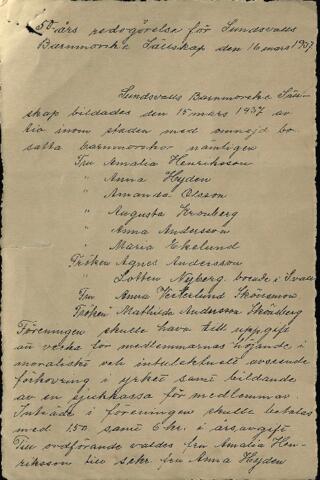 50 års redogörelse för Sundsvalls
Barnmorske Sällskap den 16 mars 1937
Sundsvalls Barnmorske Säll-
skap bildades den 15 mars 1937 av
tio inom staden med omnejd bo-
satta barnmorskor nämligen
Fru Amalia Henriksson
" Anna Hyden
" Amanda Olsson
" Augusta Kronberg
" Anna Andersson
" Maria Ekelund
Fröken Agnes Andersson
" Lotten Nyberg boende i Svall
Fru Anna Vesterlund Skönsmon
Fröken Mathilda Andersson Skönsberg
Föreningen skulle hava till uppgift
att verka för medlemmarnas höjande i
moraliskt och intelektuelt avseende
förkovring i yrket samt bildande
av en sjukkassa för medlemmar.
Inträde i föreningen skulle betalas
med 1.50 samt 6 kr. i årsavgift
Till ordförande valdes fru Amalia Hen-
riksson till sekr. fru Anna Hyden